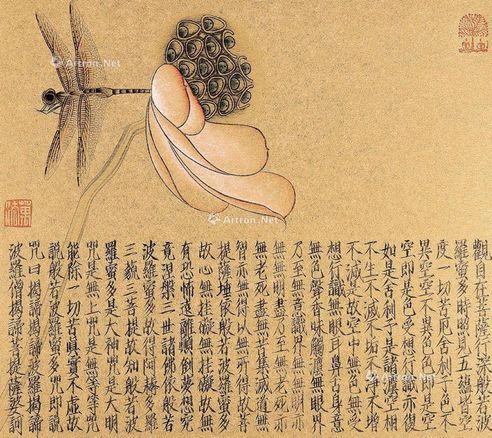 Artron.Net
Artron.Net
Artron.Net
觀自在菩薩行深般若波
羅蜜多時照見五蘊皆空
度一切苦厄舍利子色不
異空空不異色色即是空
空即是色受想行識亦復
如是舍利子是諸法空相
不生不滅不垢不淨不增
不減是故空中無色無受
想行識無眼耳鼻舌身意
無色聲香味觸法無眼界
乃至無意識界無無明亦
無無明盡乃至無老死亦
無老死盡無苦集滅道無
智亦無得以無所得故菩
提薩埵依般若波羅蜜多
故心無挂礙無挂礙故無
有恐怖遠離顛倒夢想究
竟涅槃三世諸佛依般若
波羅蜜多故得阿耨多羅
三藐三菩提故知般若波
羅蜜多是大神咒是大明
咒是無上咒是無等等咒
能除一切苦真實不虛故
說般若波羅蜜多咒即說
咒曰揭諦揭諦波羅揭諦
波羅僧揭諦菩提薩婆訶